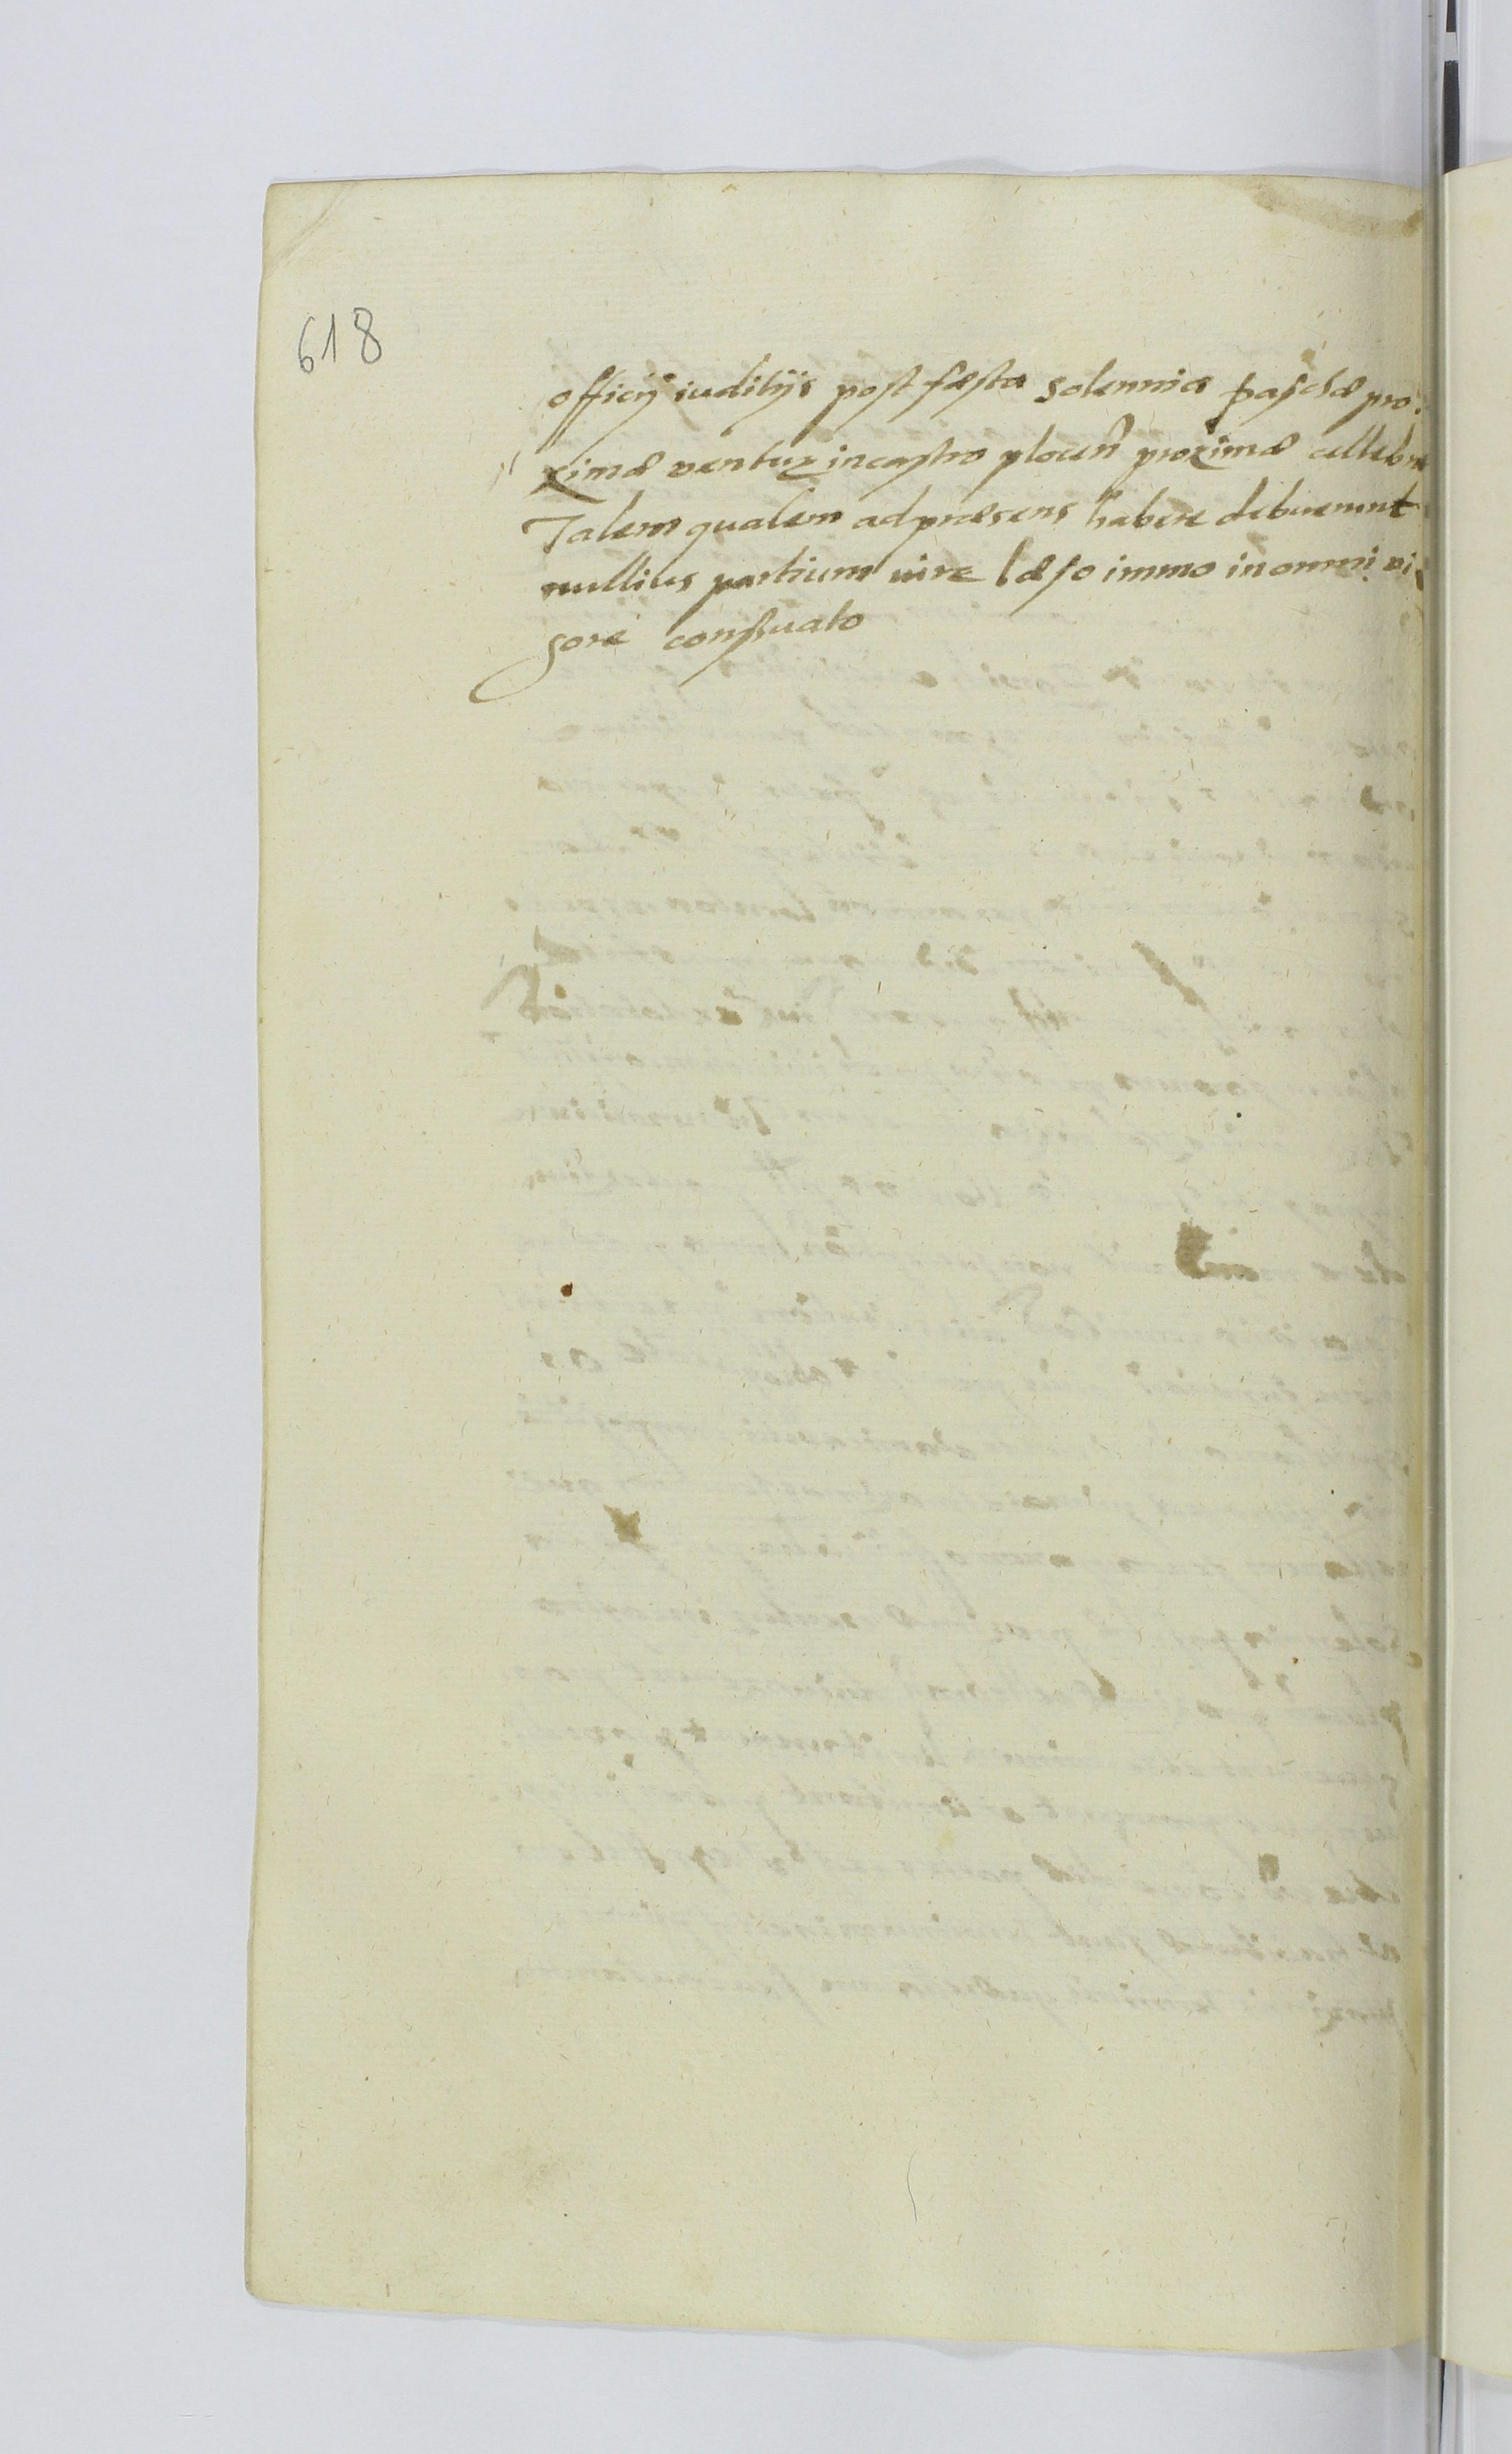 618
officij iuditijs post fæsta solennia paschæ pro:
ximæ ventur in castro plocen̄ proximæ cellebr
Talem qualem ad præsens habere debuerunt
nullius partium iure læso immo in omni vi
gore conseruato